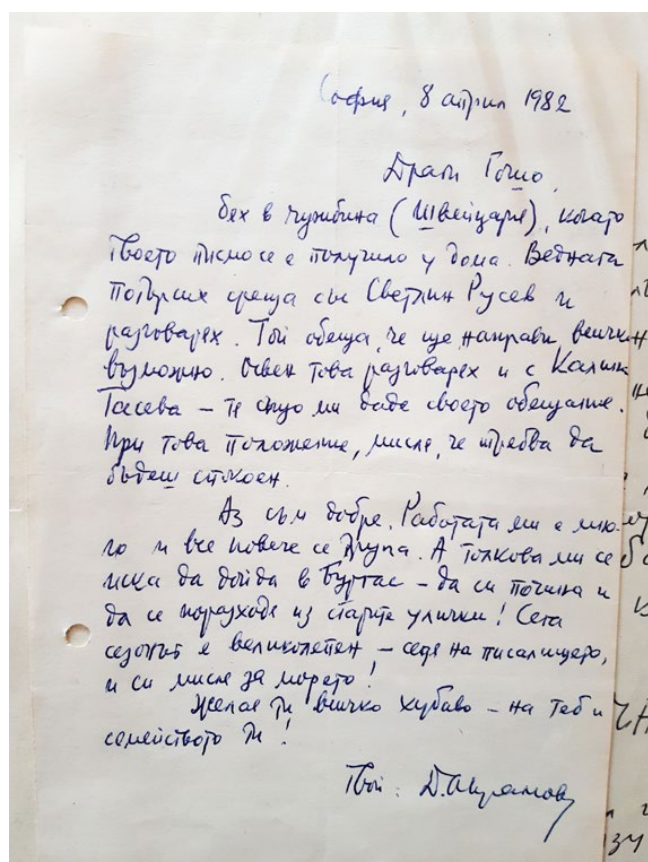 София, 8 април 1982
Драги Гошо,
бях в чужбина (Швейцария), когато
твоето писмо се е получило у дома. Веднага
потърсих среща със Светлин Русев и
разговарях. Той обеща, че ще направи всичко
възможно. Освен това разговарях и с Калина
Тасева – тя също ми даде своето обещание.
При това положение, мисля, че трябва да
бъдеш спокоен.
Аз съм добре. Работата ми е мно-
го и все повече се трупа. А толкова ми се
иска да дойда в Бургас – да си почина и
да се поразходя из старите улички! Сега
сезонът е великолепен – седя на писалището,
и си мисля за морето!
Желая ти всичко хубаво – на теб и
семейството ти!
Твой: Д. Аврамов